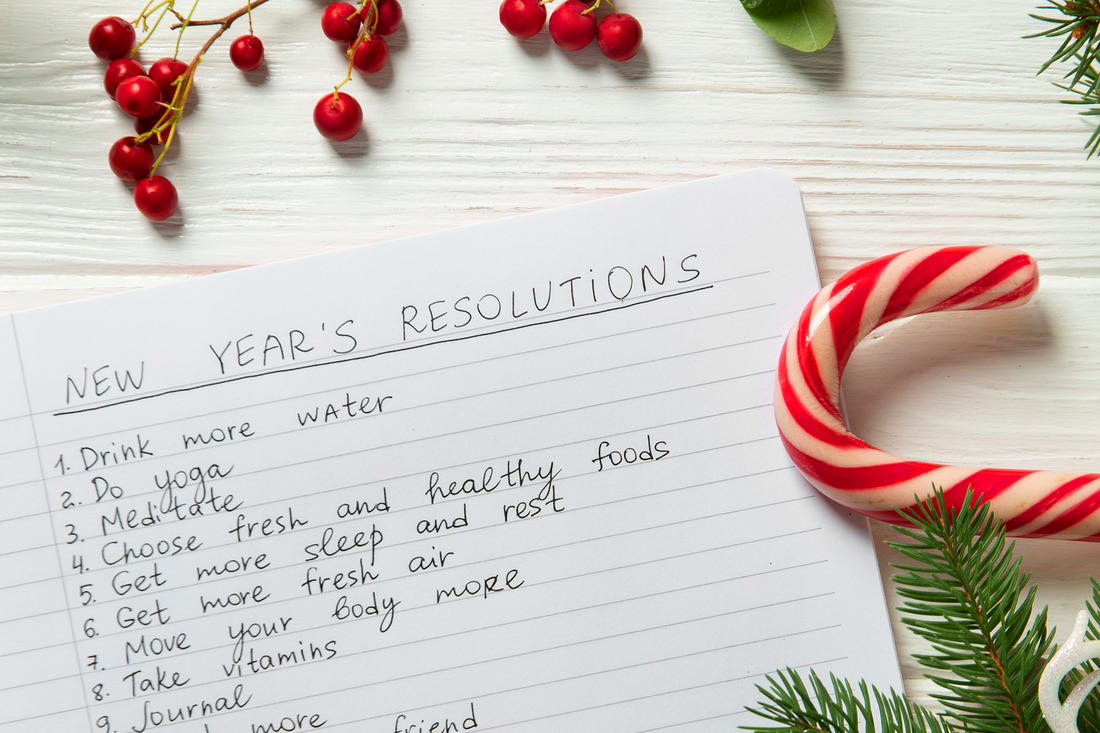 NEW YEAR'S RESOLUTIONS
1. Drink more water
2. Do yoga
3. Meditate
4. Choose fresh and healthy foods
5. Get more sleep and rest
6. Get more fresh air
7. Move your body more
8. Take vitamins
9. Journal
more friend